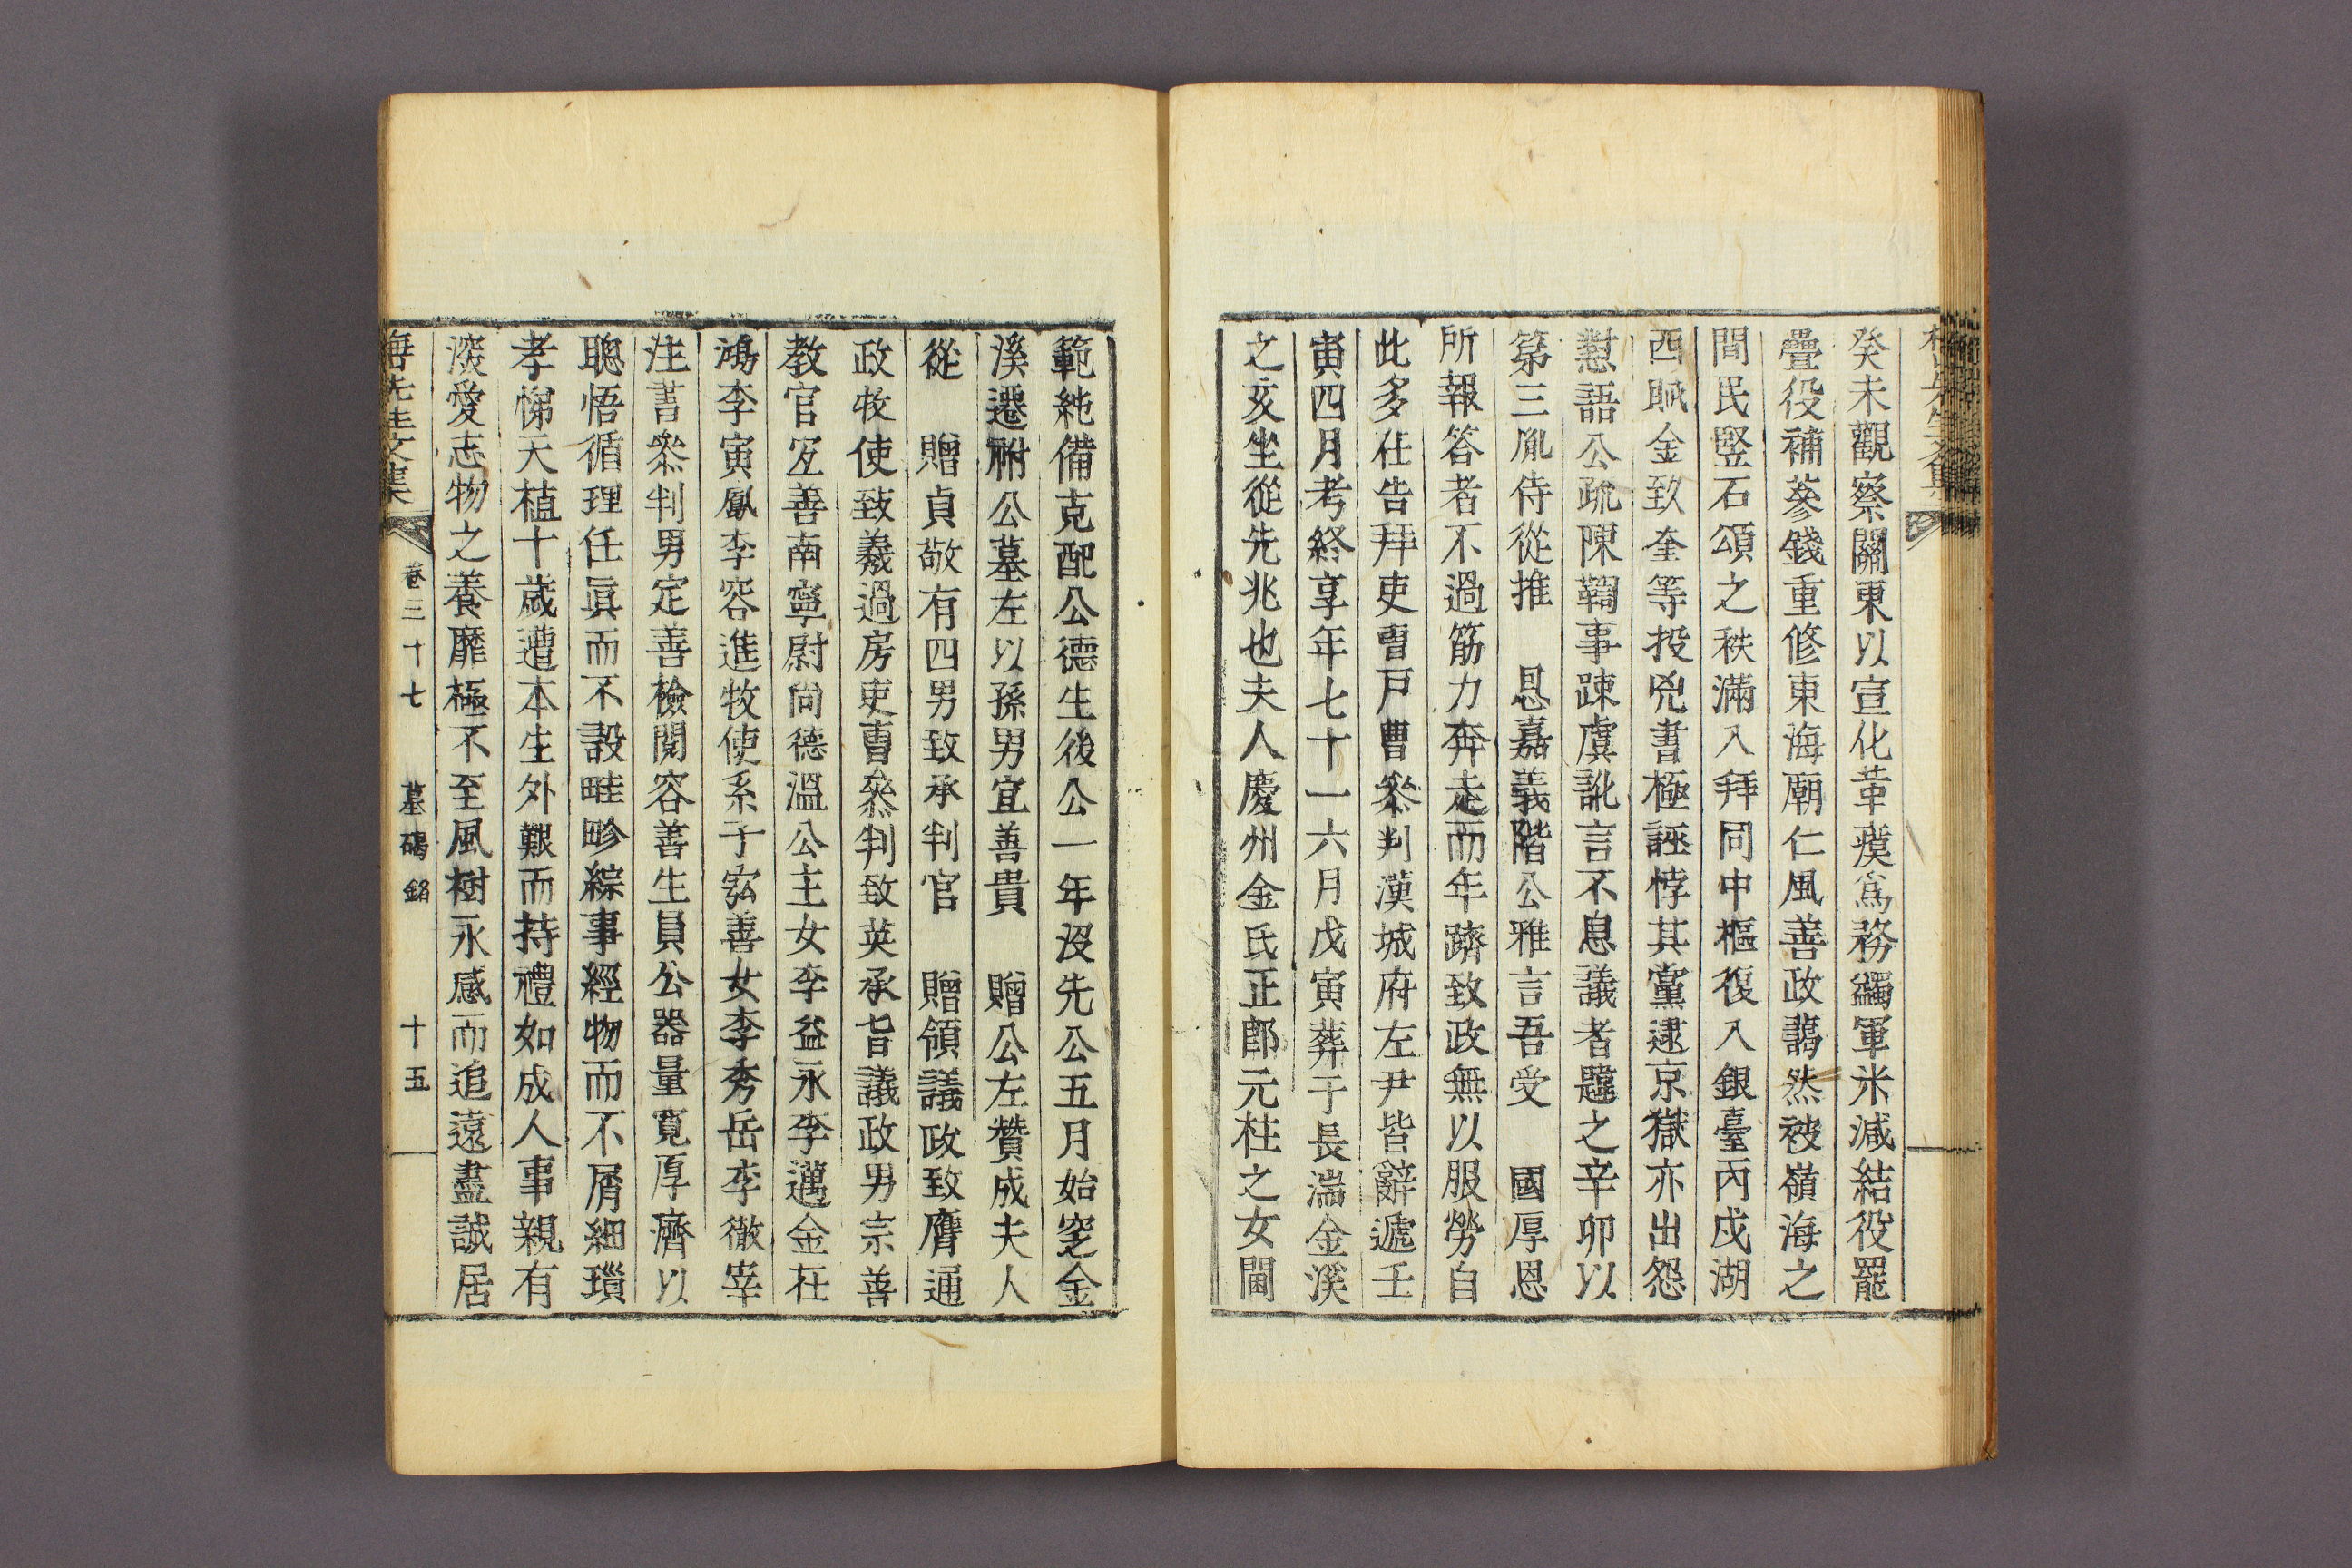 癸未觀察關東以宣化革瘼爲務蠲軍米減結役罷
疊役補蔘錢重修東海廟仁風善政藹然被嶺海之
間民竪石頌之秩滿入拜同中樞復入銀臺丙戌湖
西賊金致奎等投兇書極誣悖其黨逮京獄亦出怨
懟語公疏陳鞫事踈虞訛言不息議者韙之辛卯以
第三胤侍從推 恩嘉義階公雅言吾受 國厚恩
所報答者不過筋力奔走而年躋致政無以服勞自
此多在告拜吏曹戶曹叅判漢城府左尹皆辭遞壬
寅四月考終享年七十一六月戊寅葬于長湍金溪
之亥坐從先兆也夫人慶州金氏正郎元柱之女閫
範純備克配公德生後公一年沒先公五月始窆金
溪遷祔公墓左以孫男宜善貴 贈公左贊成夫人
從 贈貞敬有四男致承判官 贈領議政致膺通
政牧使致羲過房吏曹叅判致英承旨議政男宗善
敎官宜善南寧尉尙德溫公主女李益永李邁金在
鴻李寅鳳李容進牧使系子宏善女李秀岳李徹宰
注書叅判男定善檢閱容善生員公器量寬厚濟以
聰悟循理任眞而不設畦畛綜事經物而不屑細瑣
孝悌天植十歲遭本生外艱而持禮如成人事親有
深愛志物之養靡極不至風樹永感而追遠盡誠居
卷三十七 墓碣銘 十五